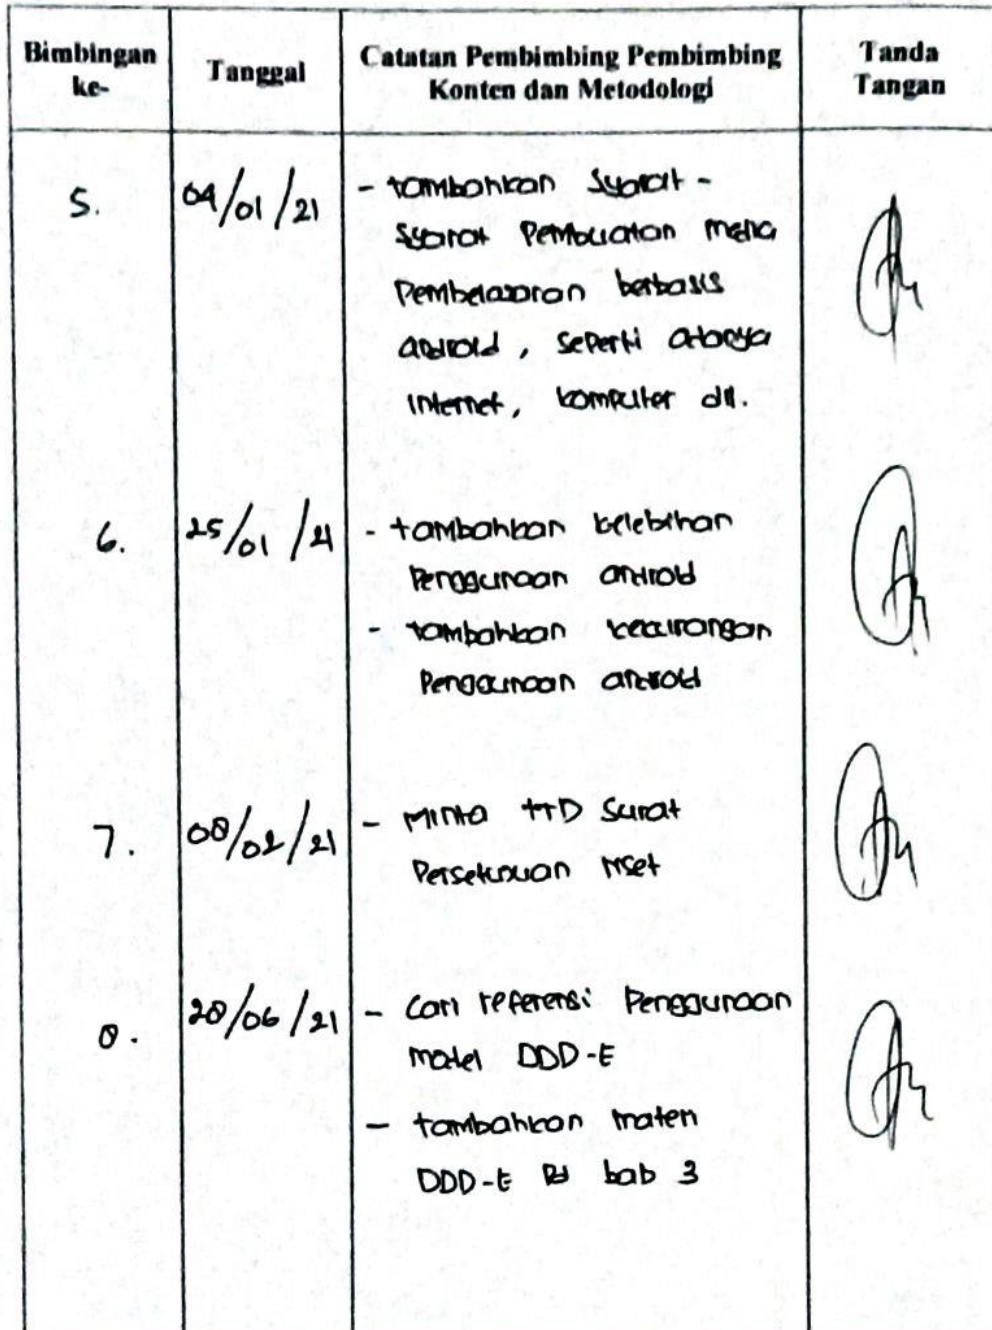 Bimbingan ke-
Tanggal
Catatan Pembimbing Pembimbing
Konten dan Metodologi
Tanda Tangan
5. 04/01/21 - tambahkan Syarat -
Syarat Pembuatan media
Pembelajaran berbasis
android, seperti adanya
internet, komputer dll.
6. 25/01/21 - tambahkan kelebihan
Penggunaan android
- tambahkan kekurangan
Penggunaan android
7. 08/02/21 - Minta TTD Surat
Persetujuan riset
8. 28/06/21 - Cari referensi Penggunaan
model DDD-E
- tambahkan materi
DDD-E di bab 3